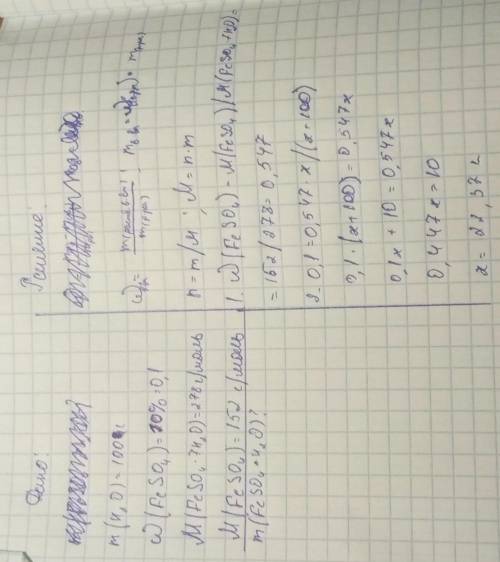 Дано:
m(H₂O) = 100г
ω(FeSO₄) = 10% = 0,1
M(FeSO₄·7H₂O) = 278 г/моль
M(FeSO₄) = 152 г/моль
m(FeSO₄·H₂O)?
Решение:
n = m/M; M = n·m
1. ω(FeSO₄) = M(FeSO₄)/M(FeSO₄·7H₂O) =
= 152/278 = 0,547
2. 0,1 = 0,547·x/(x+100)
0,1·(x+100) = 0,547x
0,1x + 10 = 0,547x
0,447x = 10
x = 22,37г